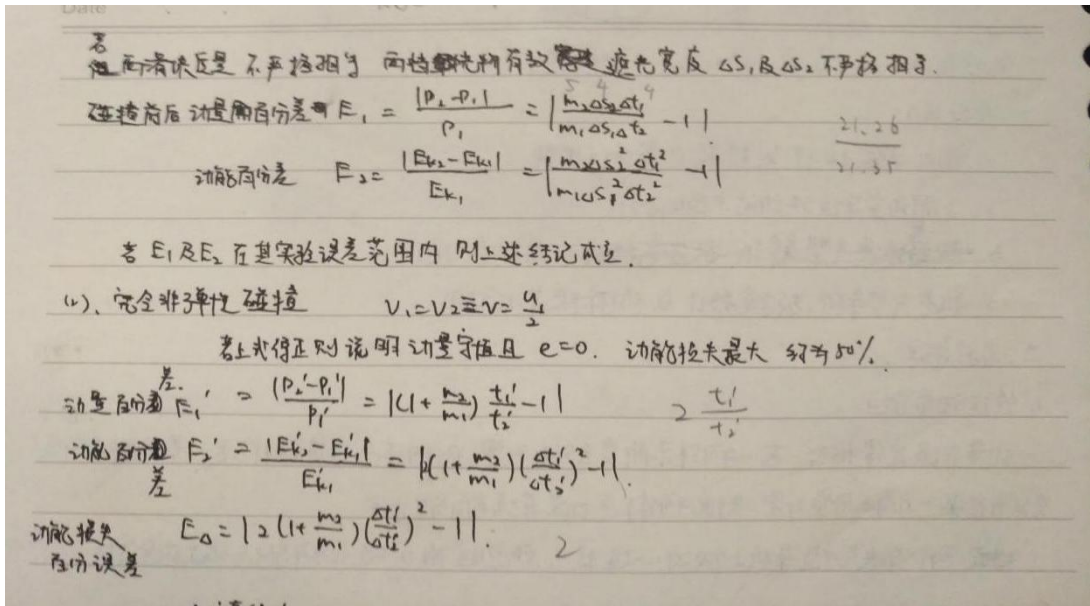 Date
若
两滑块质量不严格相等 两挡光物有效遮光宽度 ΔS₁及ΔS₂不严格相等.
碰撞前后动量百分差 E₁ = |P₂-P₁| / P₁ = |m₂ΔS₂Δt₁ / m₁ΔS₁Δt₂ - 1|
21.26
21.35
动能百分差 E₂ = |Ek₂-Ek₁| / Ek₁ = |m₂ΔS₂²Δt₁² / m₁ΔS₁²Δt₂² - 1|
若 E₁及E₂在其实验误差范围内 则上述结论成立.
(2)、完全非弹性碰撞 V₁=V₂≡V=u₁/2
若上式得正则说明动量守恒且 e=0. 动能损失最大 约为50%.
动量百分差 E₁' = |P₂'-P₁'| / P₁' = |(1+m₂/m₁) t₁'/t₂' - 1| 2 t₁'/t₂'
动能百分差 E₂' = |Ek₂'-Ek₁'| / Ek₁' = |(1+m₂/m₁)(Δt₁'/Δt₂')² - 1|.
动能损失 E_Δ = |2(1+m₂/m₁)(Δt₁'/Δt₂')² - 1|. 2
百分误差